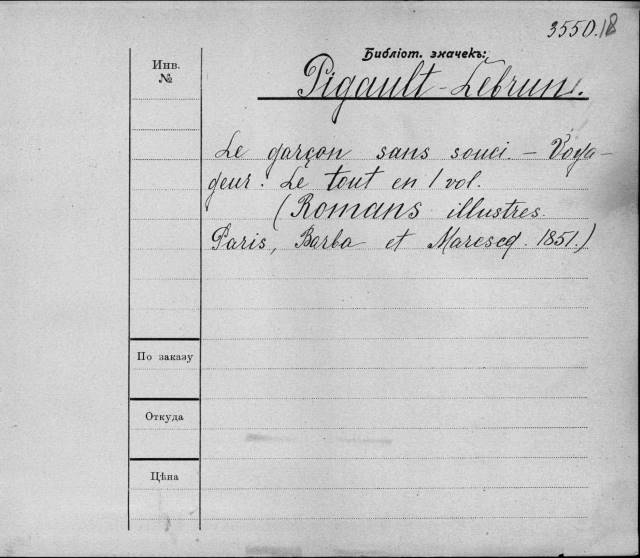 3550.18
Библіот. значекъ:
Инв.
№
Pigault-Lebrun.
Le garçon sans souci. — Voya-
geur. Le tout en 1 vol.
(Romans illustres.
Paris, Barba et Marescq. 1851.)
По заказу
Откуда
Цѣна